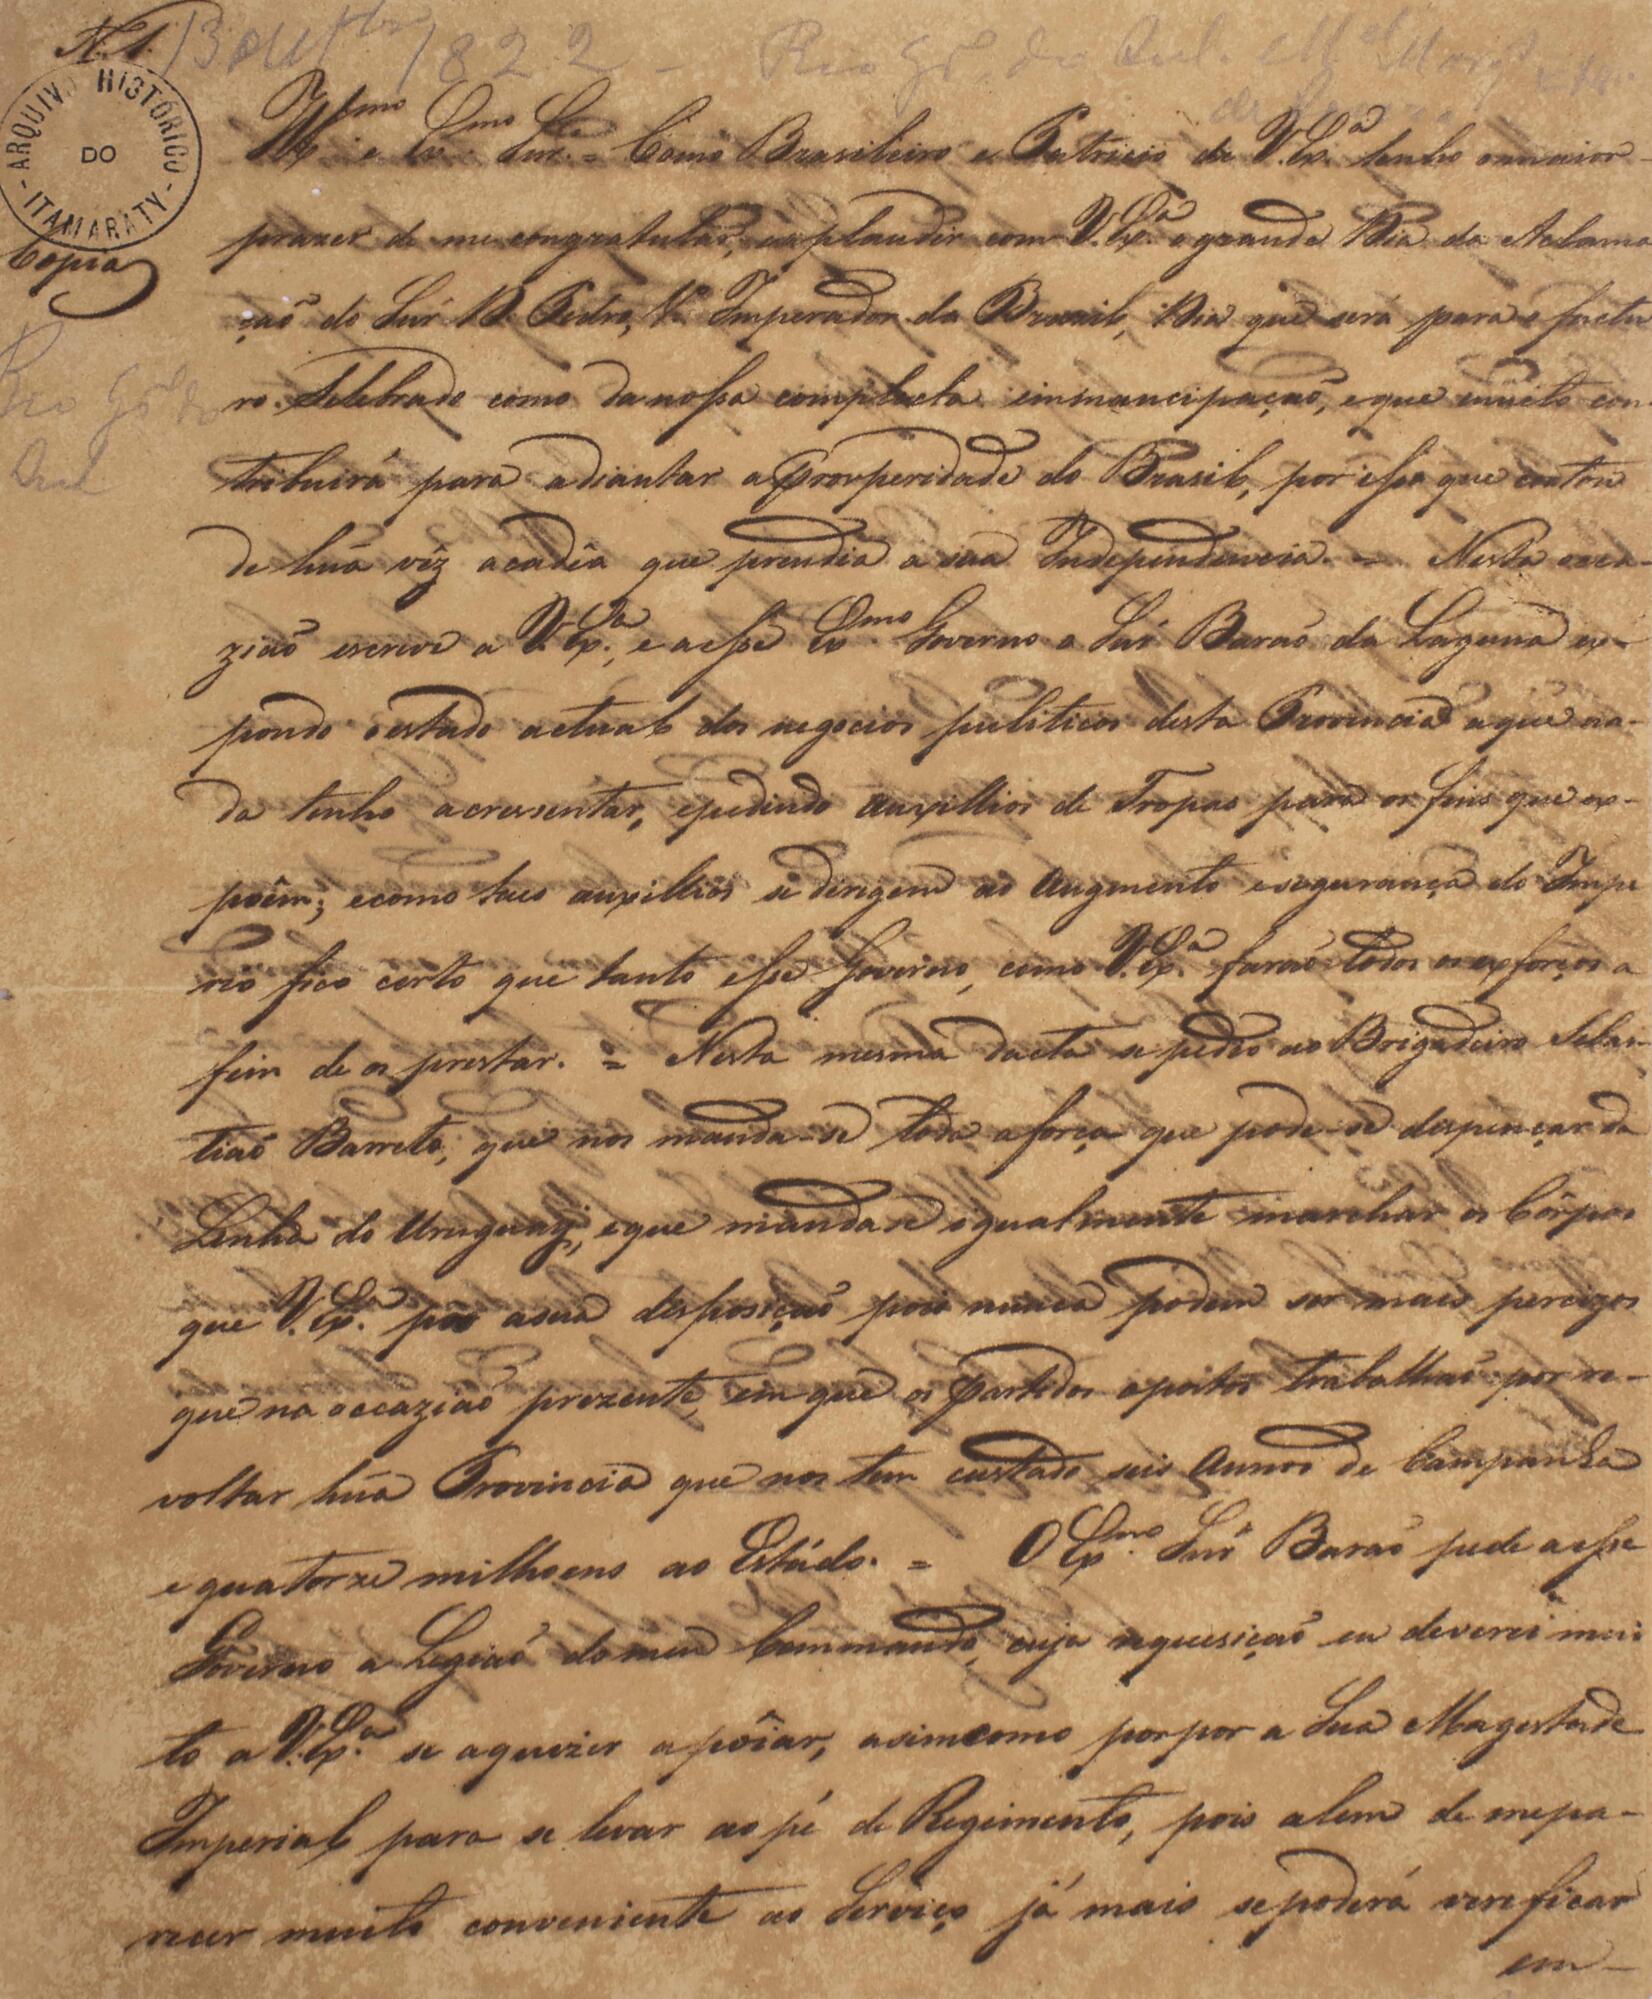 N. 1.
13 outbro 1822 - Rio Gde. do Sul. Mel Marqs
ARQUIVO HISTÓRICO
DO
- ITAMARATY -
Copia
Rio Gde do
Sul
Illmo e Exmo Snr. = Como Brasileiro e Patricio de V. Exa. tenho omaior
prazer de me congratular, e aplaudir com V. Exa. o grande Dia da Aclama
ção do Snr D. Pedro, 1º Imperador do Brasil, Dia que será para o factu
ro Selebrado como da nossa complecta immancipação, eque muito con
tribuirá para adiantar a Prosperidade do Brasil, por isso que cortou
de huã vêz acadêa que prendia a sua Independencia. = Nesta occa-
zião escreve a V. Exa., e aesse Exmo. Governo o Snr Barão da Laguna ex-
pondo oestado actual dos negocios puliticos desta Provincia aque na-
da tenho acressentar, epedindo auxillios de Tropas para os fins que ex-
poêm; ecomo taes auxillios se dirigem ao augmento esegurança do Impe
rio fico certo que tanto esse Governo, como V. Exa. farão todos os exforços a
fim de os prestar. = Nesta mesma dacta se pedio ao Brigadeiro Sebas-
tião Barreto, que nos manda-se toda aforça que pode-se despençar da
Linha do Uruguay, eque mandase egualmente marchar os Côrpos
que V. Exa. pôs asua desposição pois nunca podem ser mais percizos
que na occazião prezente, em que os Partidos opostos trabalhão por re-
voltar huã Provincia que nos tem custado seis annos de Campanha
e quatorze milhoens ao Estádo. = O Exmo. Snr Barão pede aesse
Governo a Legião do meu Commando, cuja requesição eu deverei mui
to a V. Exa. se aquezer apôiar, asimcomo porpor a Sua Magestade
Imperial para se levar ao pé de Regimento, pois alem de mepa-
recer muito conveniente ao Serviço já mais sepoderá vereficar
em-